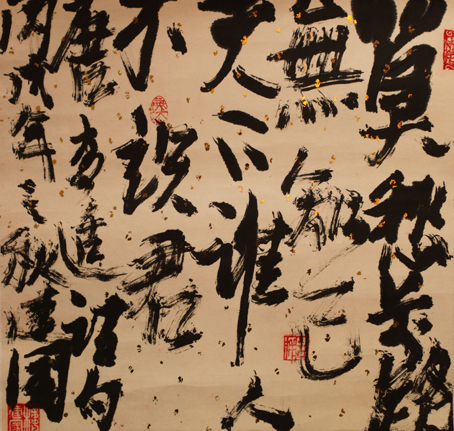 莫愁前路
無知己
天下谁人
不识君
唐高適诗句
丙戌年之秋建国